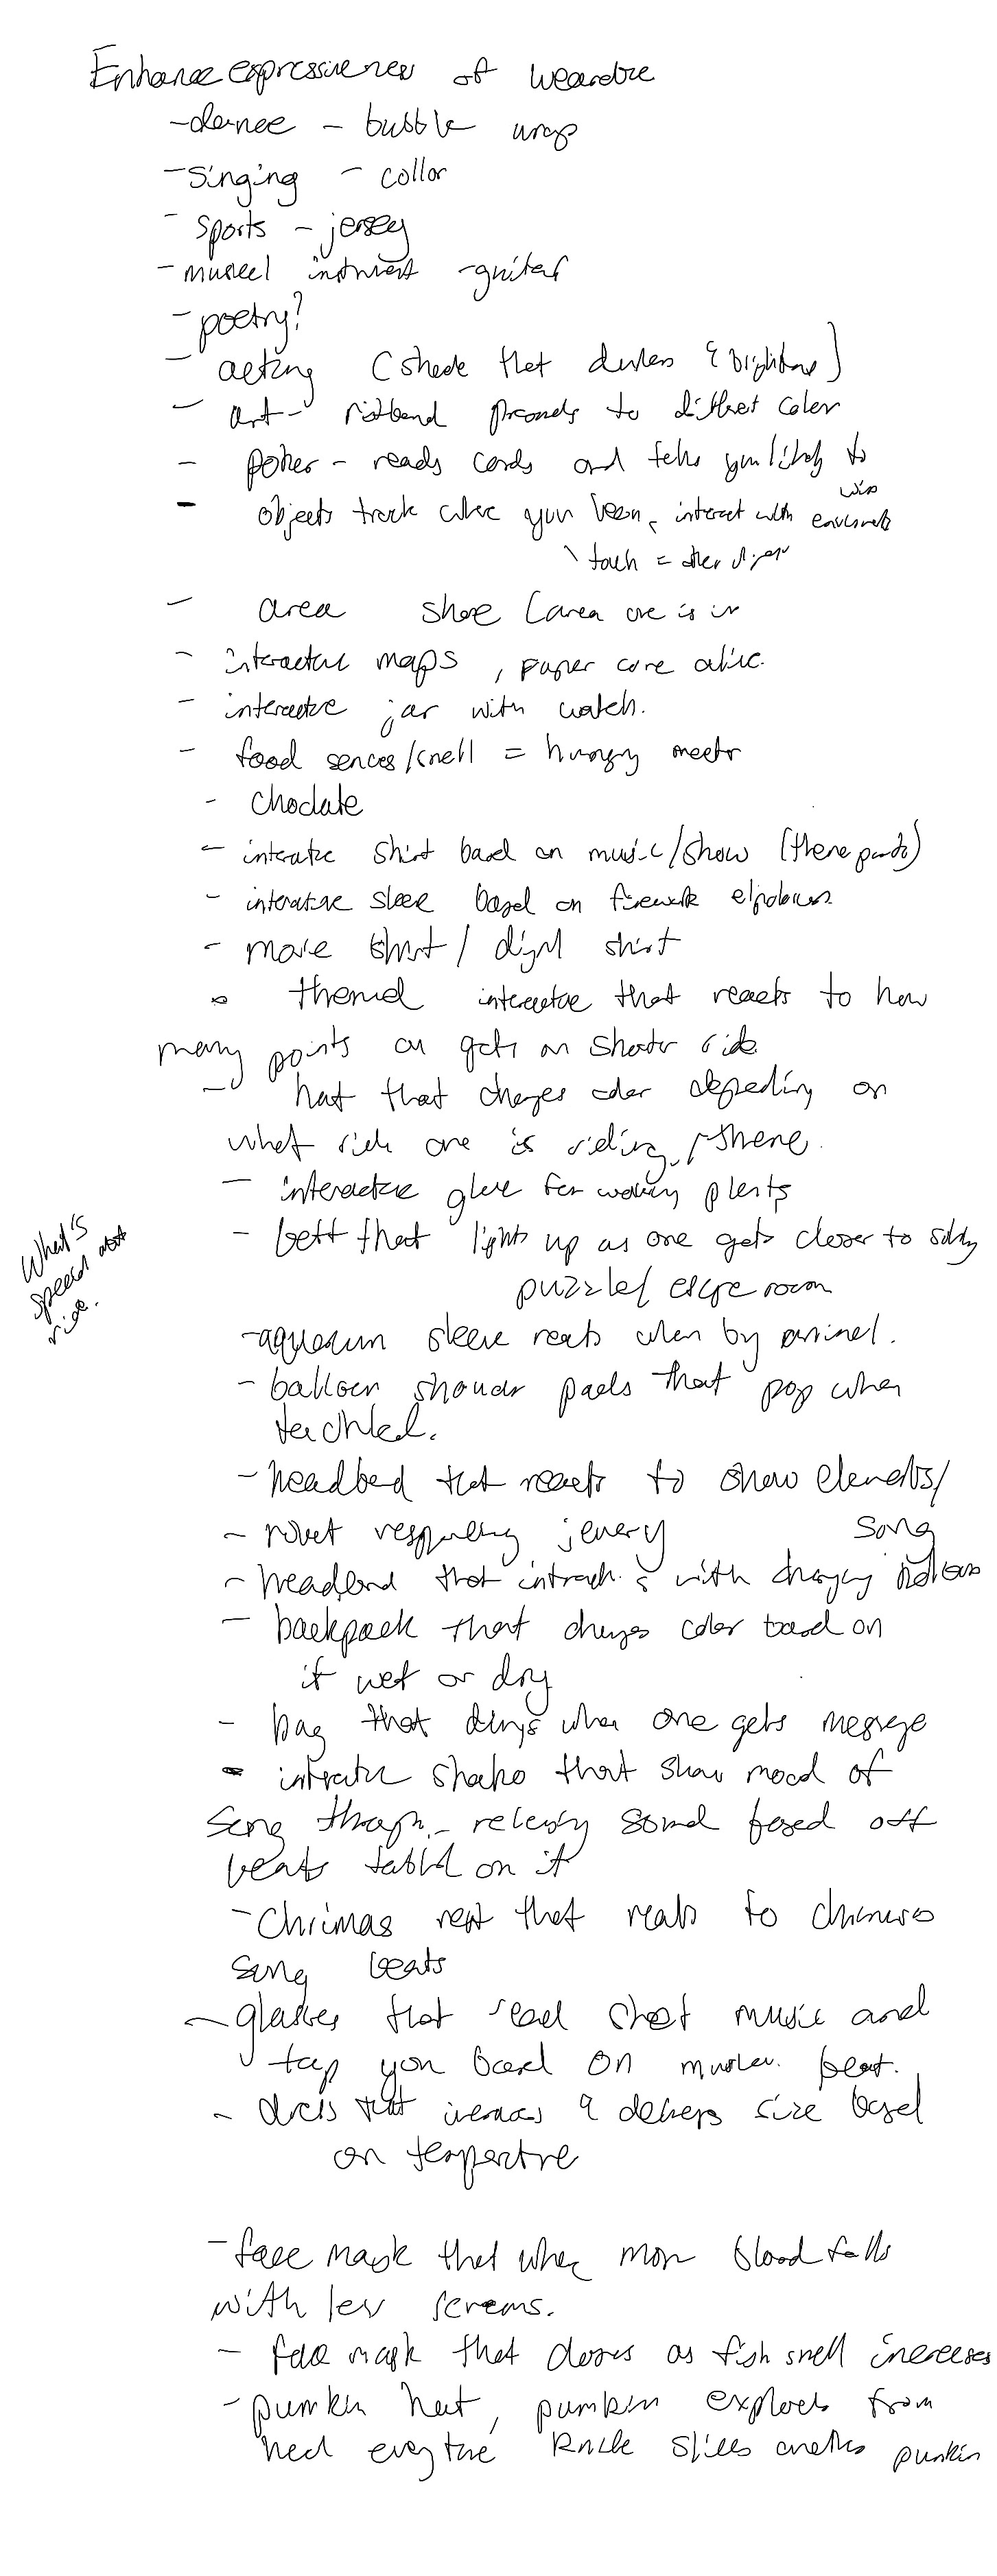 Enhance expressiveness of wearable
- dance - bubble wrap
- singing - collar
- sports - jersey
- guitar
- poetry?
- acting (shade that
- art - to color
- poker - reads cards and tells you likely to
win
- objects track where you been, interact with
touch =
- area shoe (area one is in
- interactive maps, paper come alive.
- interactive jar with watch.
- food sences/smell = hungry meter
- Choclate
- interactive shirt based on music/show (theme parks)
- interactive sleeve based on firework
- shirt / shirt
- themed interactive that reacts to how
many points on gets on shooter ride
- hat that changes color depending on
what ride one is riding, theme.
- interactive glove for plants
- belt that lights up as one gets closer to
puzzle/ escape room
What's
speed
ride.
- aquarium sleeve reacts when by animal.
- balloon shoulder pads that pop when
- headband that reacts to show elements/
song
- robot jewelry
- headband that with changing
- backpack that changes color based on
if wet or dry
- bag that when one gets message
- interactive shako that show mood of
song sound based off
beats on it
- Chrimas that reacts to
song beats
- glasses that read sheet music and
tap you based on beat.
- dress that & size based
on temperature
- face mask that when more blood falls
with less screams.
- face mask that closes as fish smell increases
- pumkin hat, pumkin explodes from
head everytime knife slices another punkin